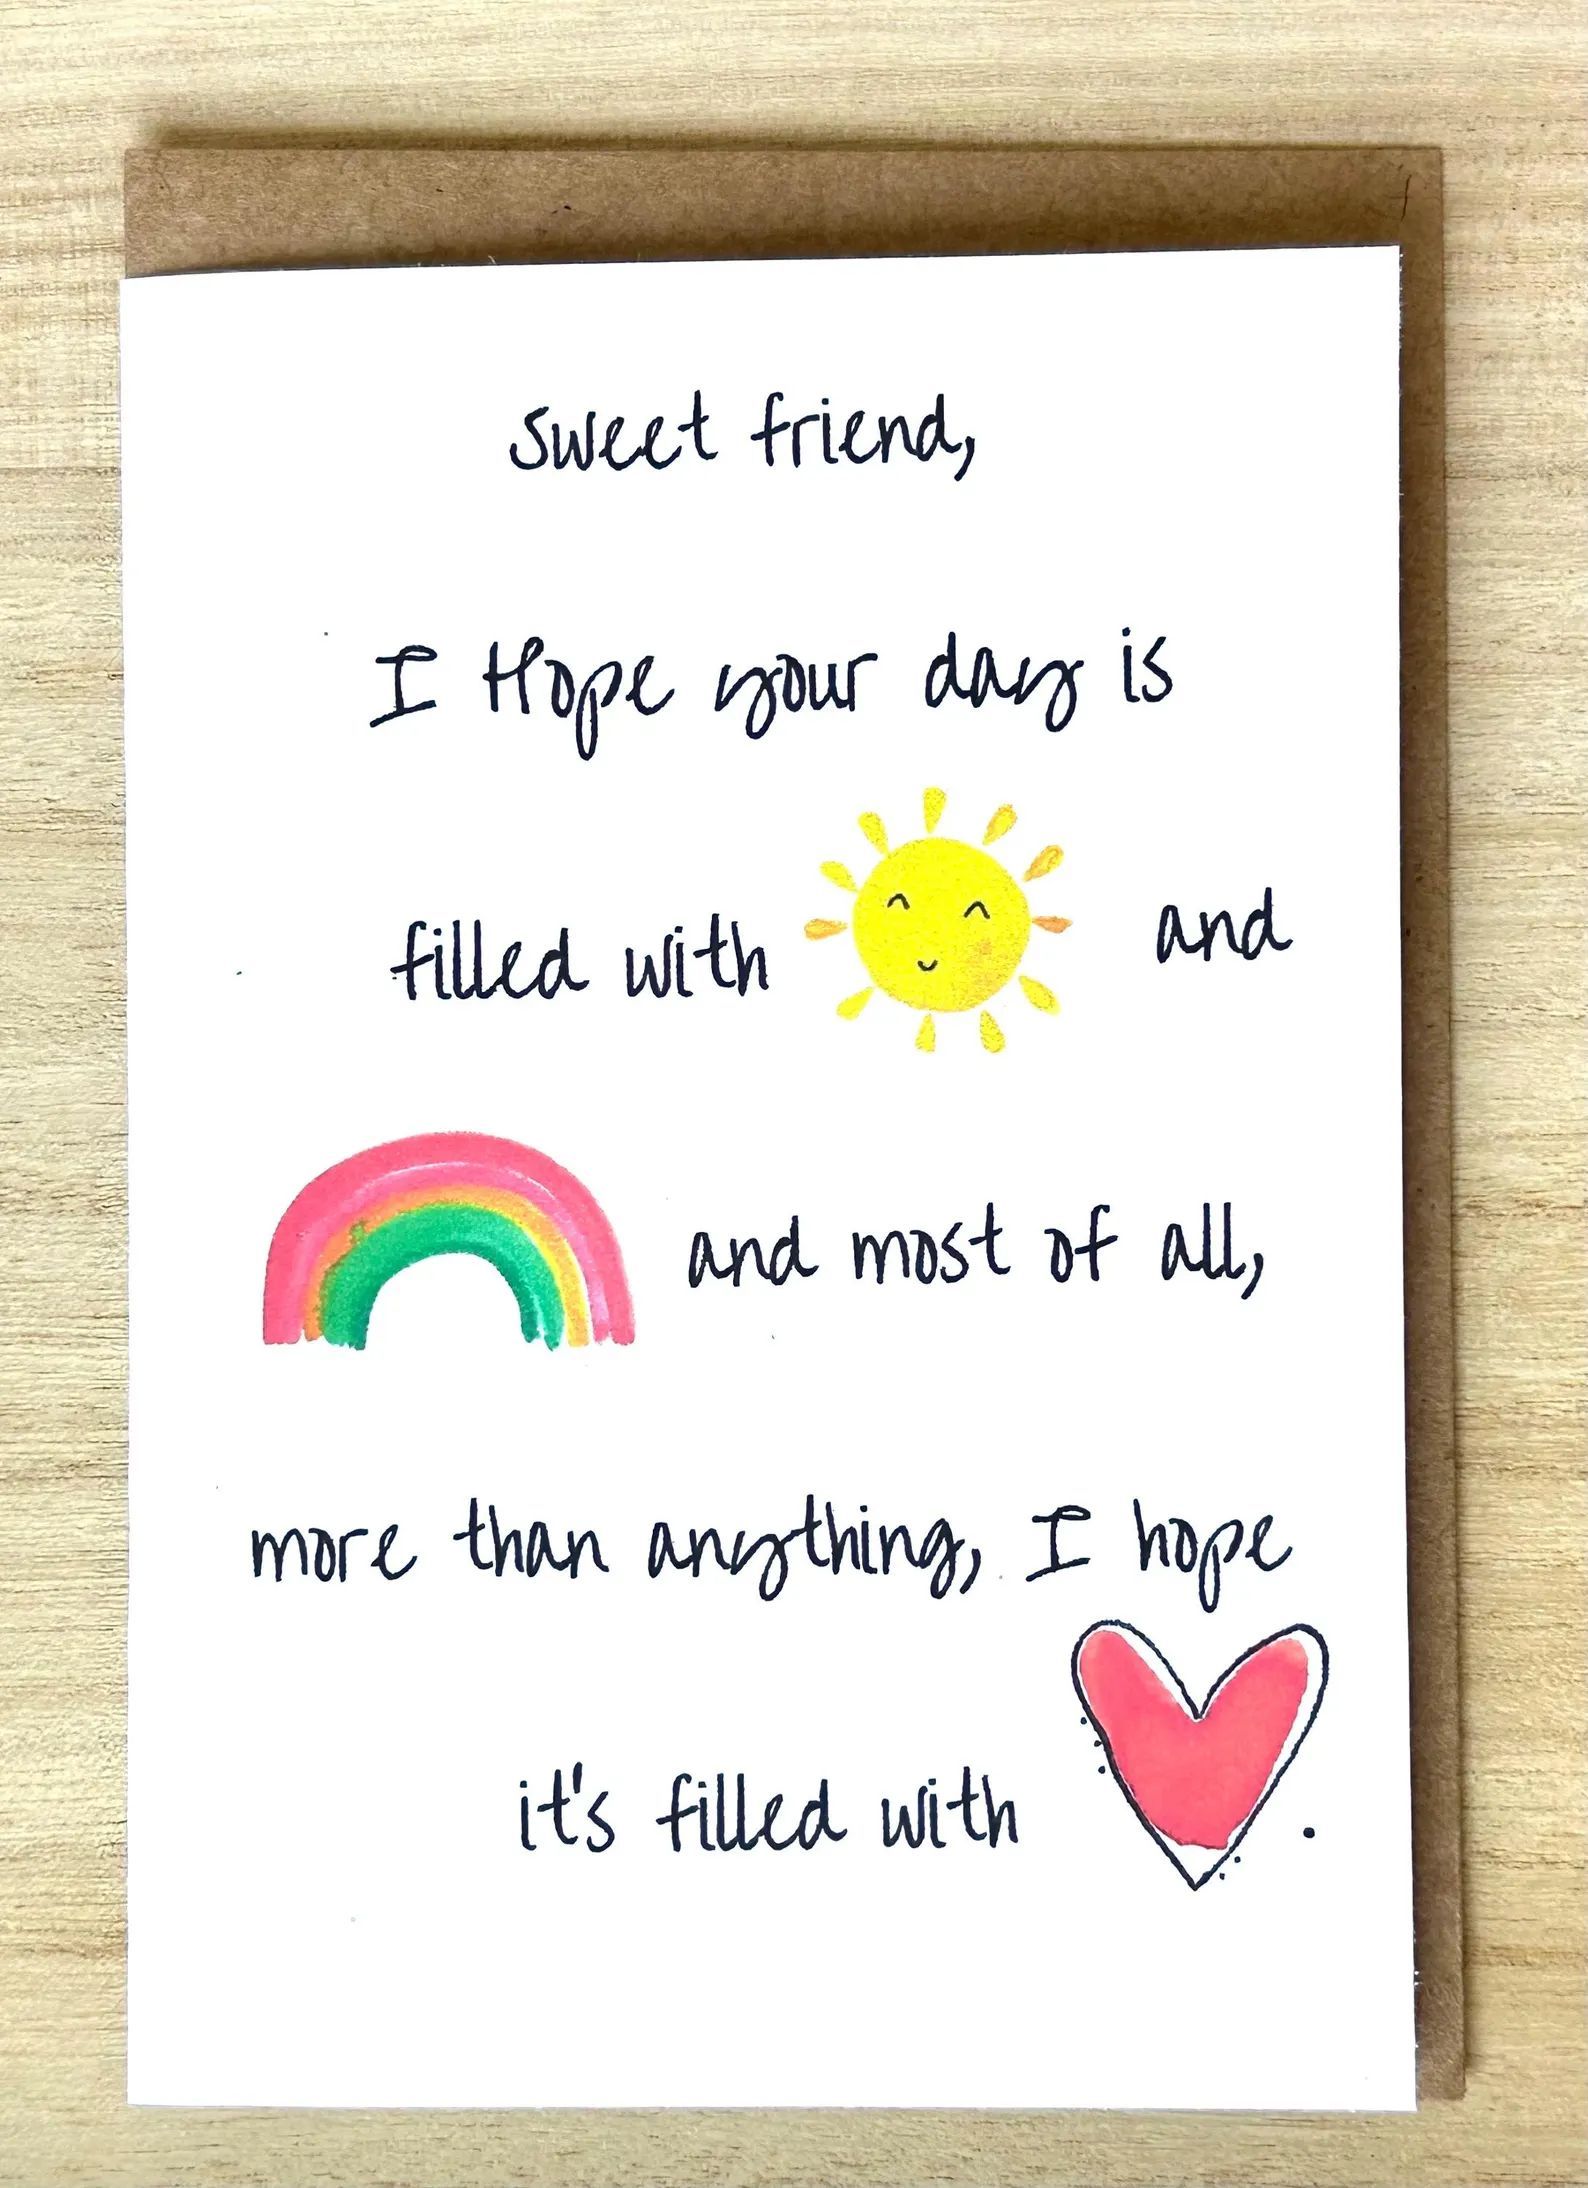 sweet friend,
I Hope your day is
filled with and
and most of all,
more than anything, I hope
it's filled with .